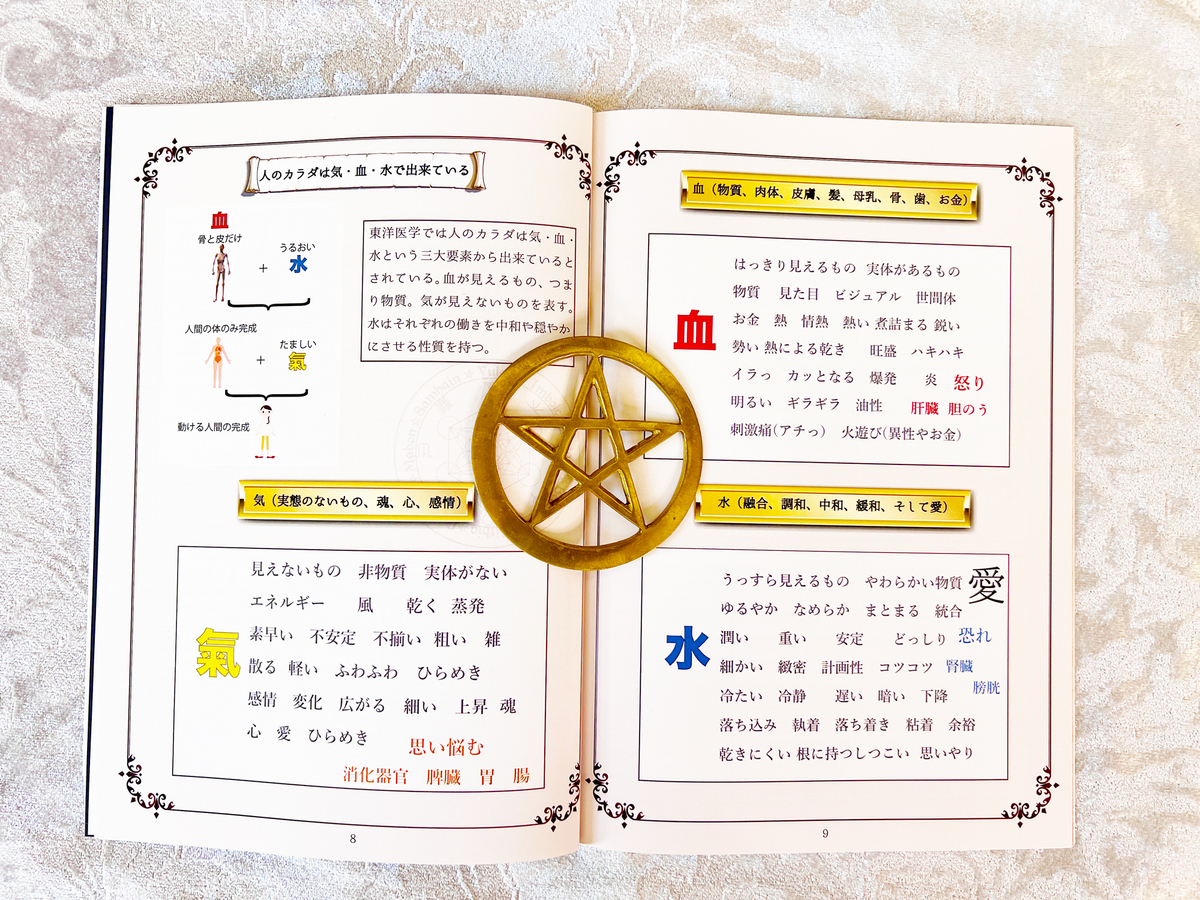 人のカラダは気・血・水で出来ている
血
骨と皮だけ
+
うるおい
水
人間の体のみ完成
+
たましい
氣
動ける人間の完成
東洋医学では人のカラダは気・血・
水という三大要素から出来ていると
されている。血が見えるもの、つま
り物質。気が見えないものを表す。
水はそれぞれの働きを中和や穏やか
にさせる性質を持つ。
気（実態のないもの、魂、心、感情）
氣
見えないもの 非物質 実体がない
エネルギー 風 乾く 蒸発
素早い 不安定 不揃い 粗い 雑
散る 軽い ふわふわ ひらめき
感情 変化 広がる 細い 上昇 魂
心 愛 ひらめき 思い悩む
消化器官 脾臓 胃 腸
8
血（物質、肉体、皮膚、髪、母乳、骨、歯、お金）
血
はっきり見えるもの 実体があるもの
物質 見た目 ビジュアル 世間体
お金 熱 情熱 熱い 煮詰まる 鋭い
勢い 熱による乾き 旺盛 ハキハキ
イラっ カッとなる 爆発 炎 怒り
明るい ギラギラ 油性 肝臓 胆のう
刺激痛（アチっ） 火遊び（異性やお金）
水（融合、調和、中和、緩和、そして愛）
水
うっすら見えるもの やわらかい物質 愛
ゆるやか なめらか まとまる 統合
潤い 重い 安定 どっしり 恐れ
細かい 緻密 計画性 コツコツ 腎臓
冷たい 冷静 遅い 暗い 下降 膀胱
落ち込み 執着 落ち着き 粘着 余裕
乾きにくい 根に持つしつこい 思いやり
9